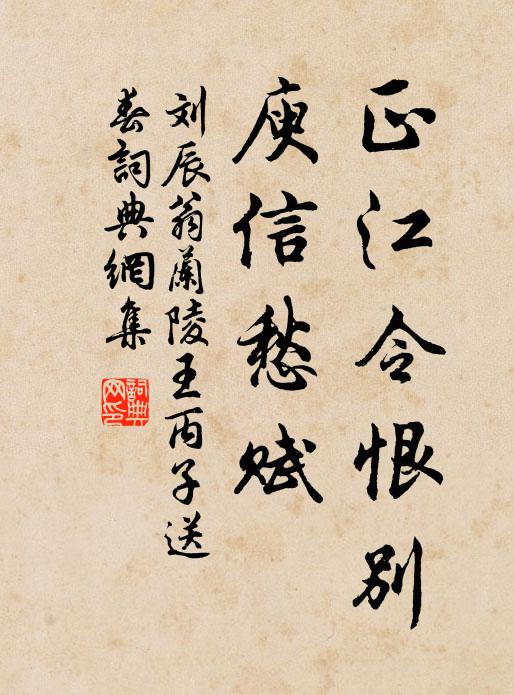 正江令恨別
庾信愁賦
刘辰翁蘭陵王丙子送
春詞典網集
詞典
网印